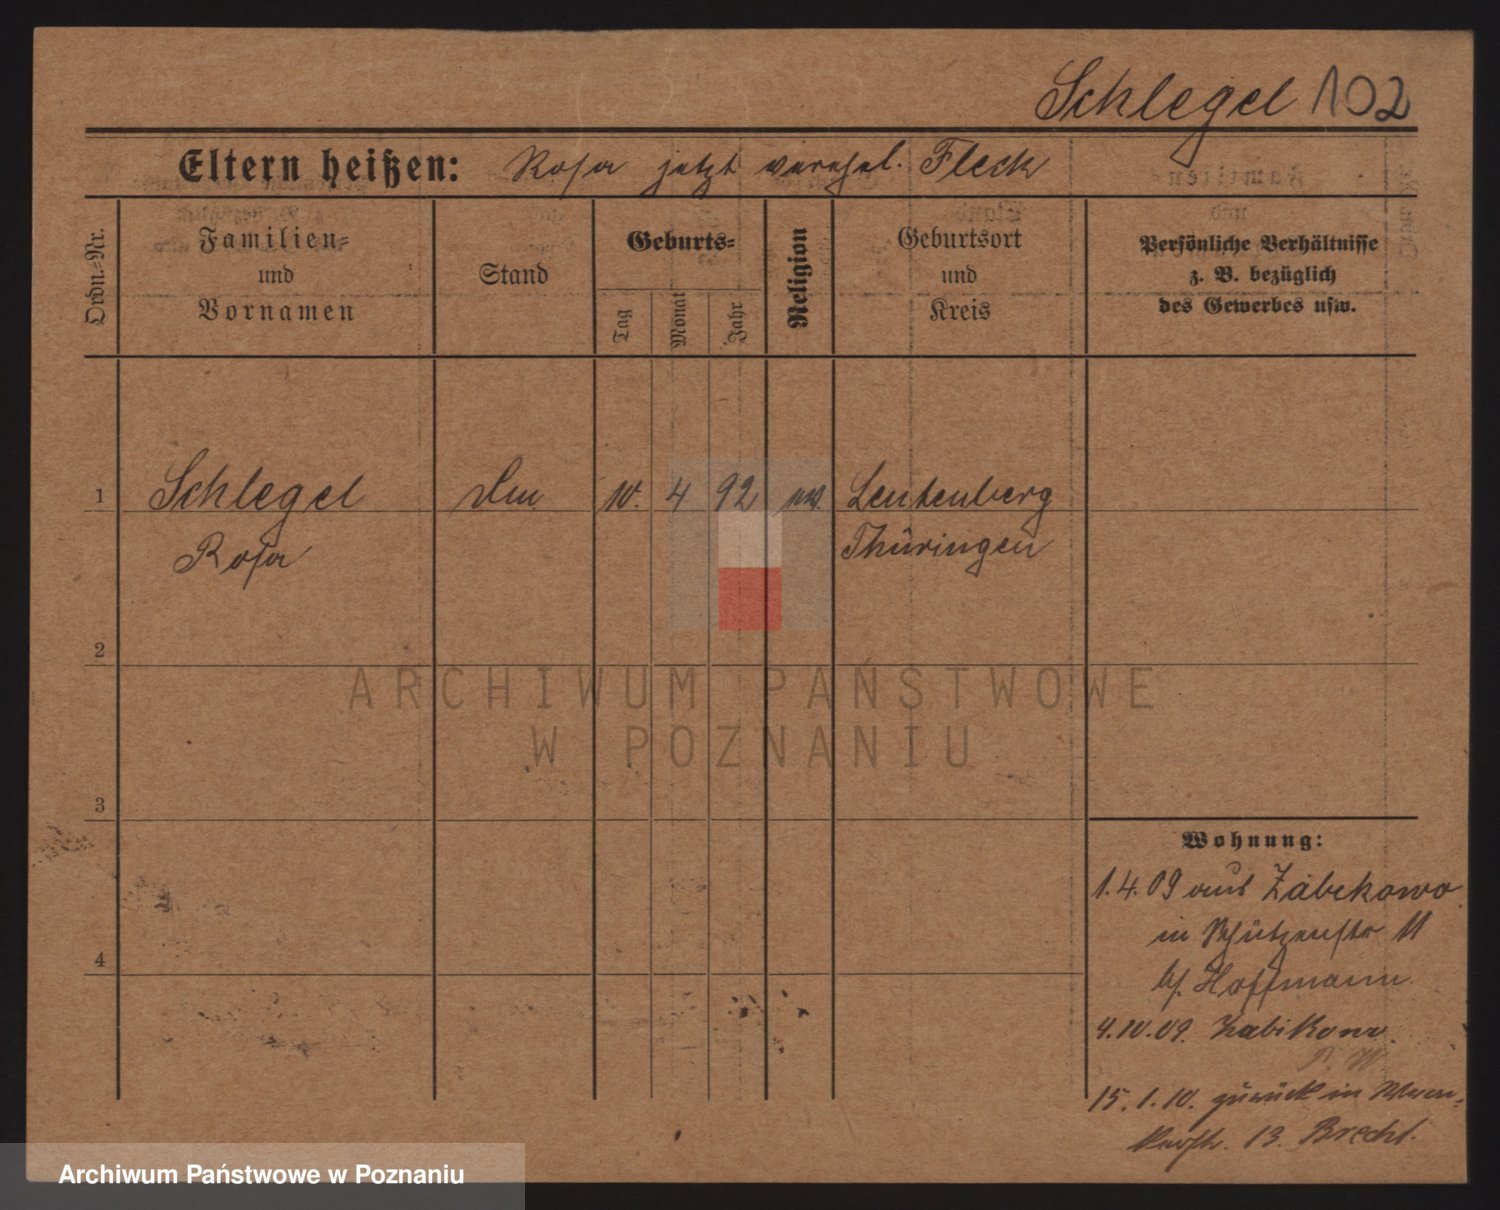 Schlegel 102
Eltern heißen: Rosa jetzt verehel. Fleck
Ordn.-Nr.
Familien-
und
Vornamen
Stand
Geburts-
Tag
Monat
Jahr
Religion
Geburtsort
und
Kreis
Persönliche Verhältnisse
z. B. bezüglich
des Gewerbes usw.
1
Schlegel
Rosa
10. 4 92
Leutenberg
Thüringen
2
3
4
Wohnung:
1.4.09 aus Zabikowo
in Schützenstr 11
b/. Hoffmann
4.10.09. Zabikowo
15.1.10. zurück in
13. Brecht.
ARCHIWUM PAŃSTWOWE
W POZNANIU
Archiwum Państwowe w Poznaniu